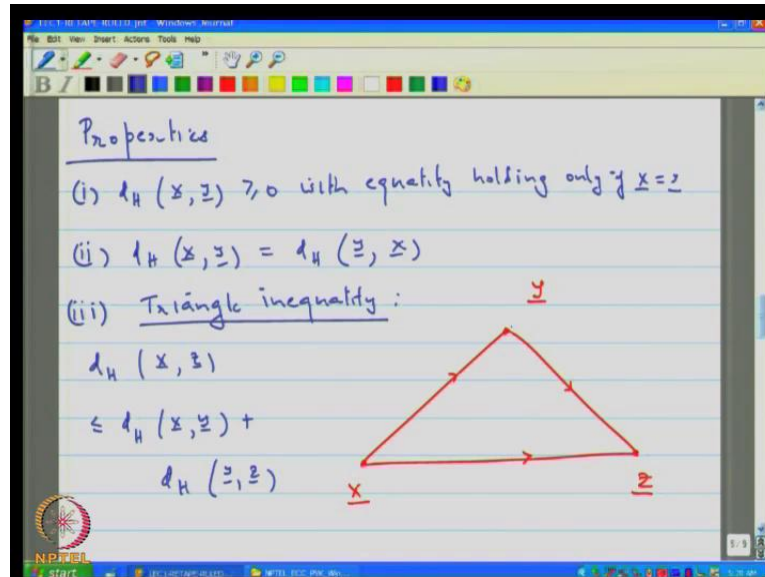 LEC1-RETAPE-RULED.jnt - Windows Journal
File Edit View Insert Actions Tools Help
B I
Properties
(i) d_H (x, y) ≥ 0 with equality holding only if x = y
(ii) d_H (x, y) = d_H (y, x)
(iii) Triangle inequality :
y
d_H (x, z)
≤ d_H (x, y) +
d_H (y, z)
x
z
5/9
NPTEL
start
LEC1-RETAPE-RULED...